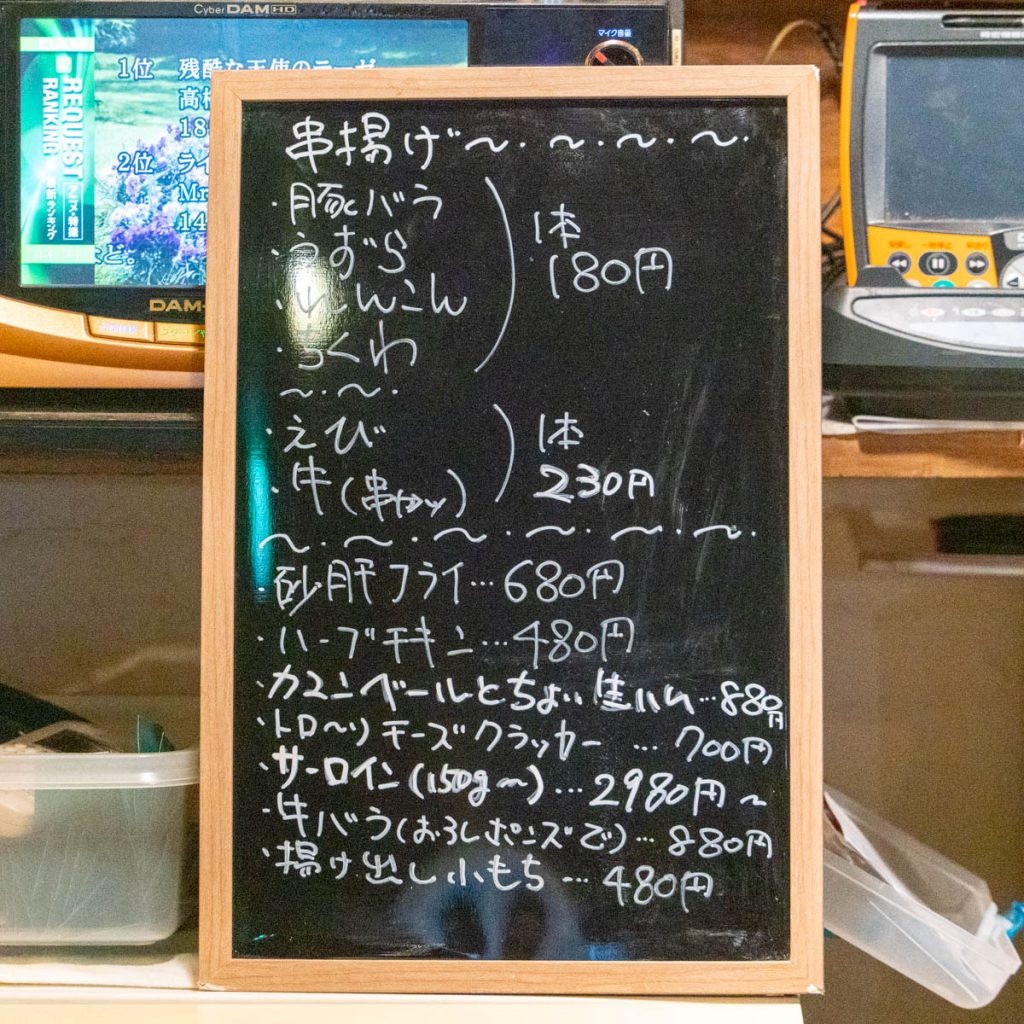 Cyber DAM HD
マイク音量
1位 残酷な天使の
高
18
2位 ライ
Mr
14
REQUEST
RANKING
アニメ・特撮
最新ランキング
DAM
串揚げ～・～・～・～・
・豚バラ
・うずら
・れんこん
・ちくわ
1本
180円
～・～・
・えび
・牛(串カツ)
1本
230円
～・～・～・～・～・～・
・砂肝フライ…680円
・ハーブチキン…480円
・カマンベールとちょい生ハム…880円
・トロ～リチーズクラッカー …700円
・サーロイン(150g～)…2980円～
・牛バラ(おろしポンズで)…880円
・揚げ出し小もち …480円